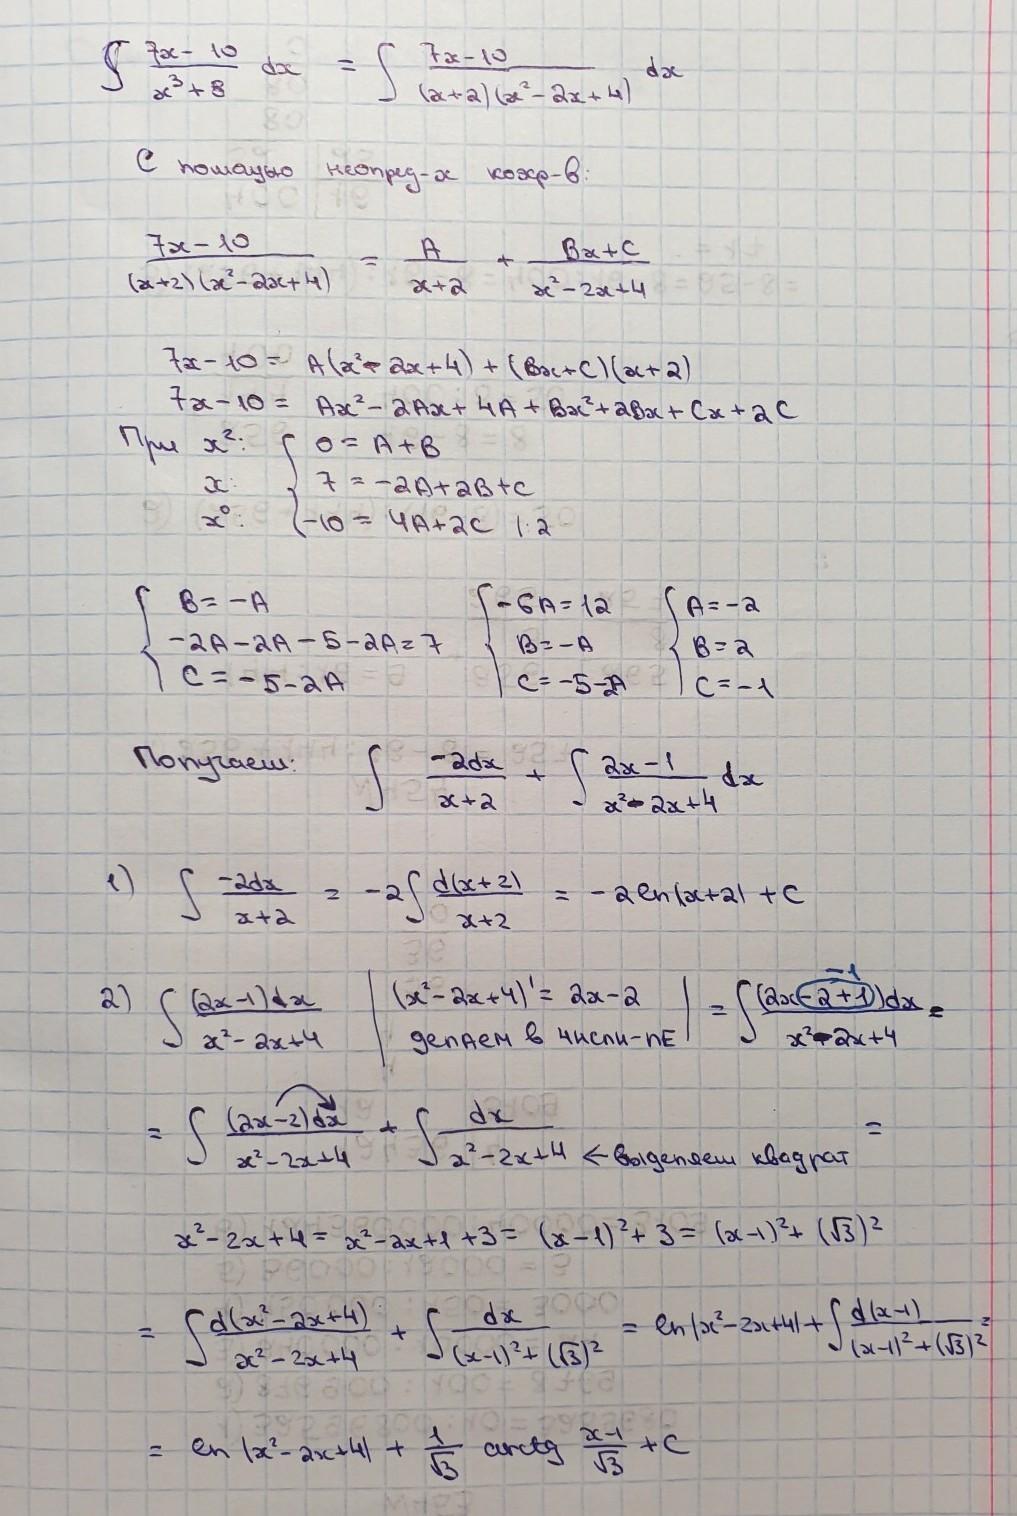 ∫ (7x-10)/(x³+8) dx = ∫ (7x-10)/((x+2)(x²-2x+4)) dx
С помощью неопред-х коэф-в:
(7x-10)/((x+2)(x²-2x+4)) = A/(x+2) + (Bx+C)/(x²-2x+4)
7x-10 = A(x²-2x+4) + (Bx+C)(x+2)
7x-10 = Ax²-2Ax+4A+Bx²+2Bx+Cx+2C
При x²: { 0 = A+B
x: 7 = -2A+2B+C
x⁰: -10 = 4A+2C |:2
{ B=-A { -6A=12 { A=-2
-2A-2A-5-2A=7 B=-A B=2
C=-5-2A C=-5-2A C=-1
Получаем: ∫ -2dx/(x+2) + ∫ (2x-1)/(x²-2x+4) dx
1) ∫ -2dx/(x+2) = -2∫ d(x+2)/(x+2) = -2ln|x+2| + C
2) ∫ (2x-1)dx/(x²-2x+4) | (x²-2x+4)' = 2x-2 делаем в числи-лЕ | = ∫ (2x-2+1)dx/(x²-2x+4) =
-1
= ∫ (2x-2)dx/(x²-2x+4) + ∫ dx/(x²-2x+4) ← выделяем квадрат =
x²-2x+4 = x²-2x+1+3 = (x-1)²+3 = (x-1)²+(√3)²
= ∫ d(x²-2x+4)/(x²-2x+4) + ∫ dx/((x-1)²+(√3)²) = ln|x²-2x+4| + ∫ d(x-1)/((x-1)²+(√3)²) =
= ln|x²-2x+4| + 1/√3 arctg (x-1)/√3 + C